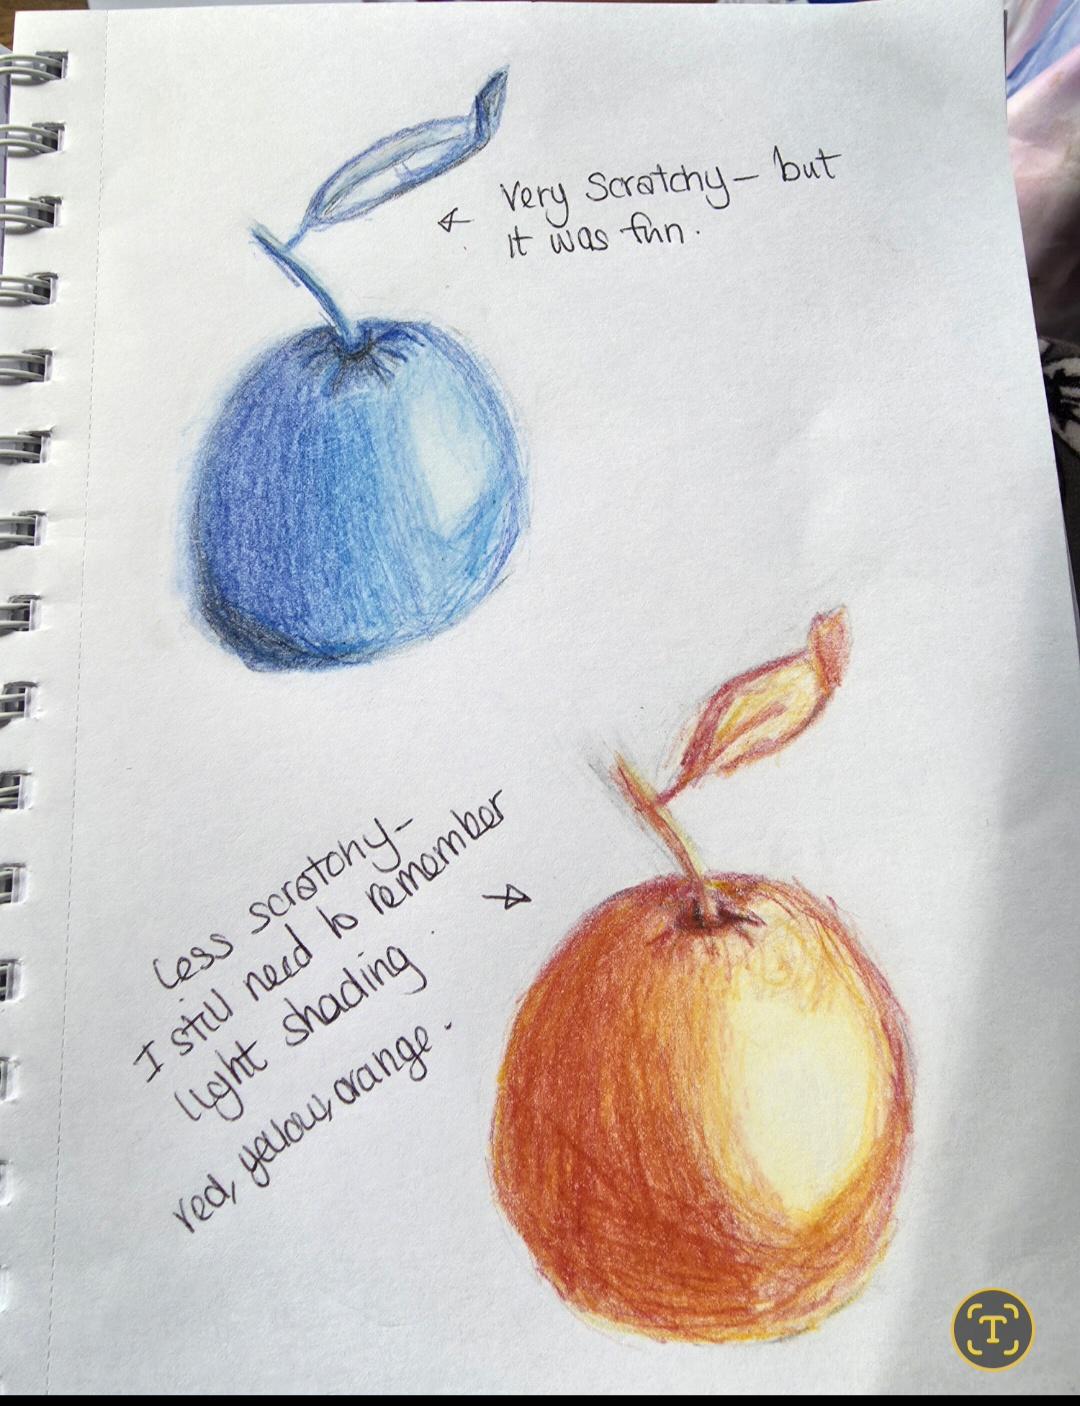 Very scratchy — but
it was fun.
Less scratchy —
I still need to remember
light shading.
red, yellow, orange.